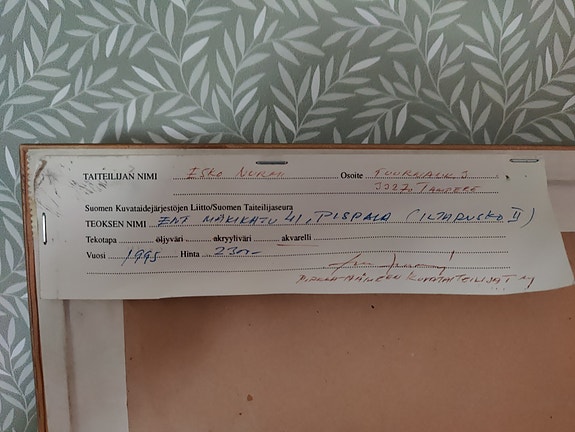 TAITEILIJAN NIMI ESKO NURMI Osoite
33270 TAMPERE
Suomen Kuvataidejärjestöjen Liitto/Suomen Taiteilijaseura
TEOKSEN NIMI ENT MÄKIKATU 41, PISPALA (ILTARUSKO II)
Tekotapa öljyväri akryyliväri akvarelli
Vuosi 1995 Hinta 230:-
PIRKANMAAN KUVATAITEILIJAT RY